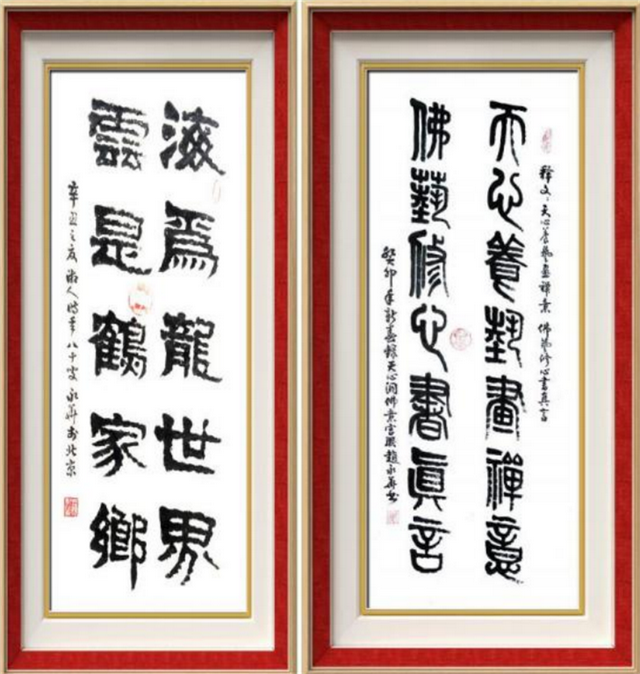 海爲龍世界
雲是鶴家鄉
辛丑之夏 湘人時年八十叟 永華書北京
釋文:天心養藝畫禪意 佛藝修心書真言
天心養藝畫禪意
佛藝修心書眞言
癸卯年新春錄天心閣佛意宮聯趙永華書